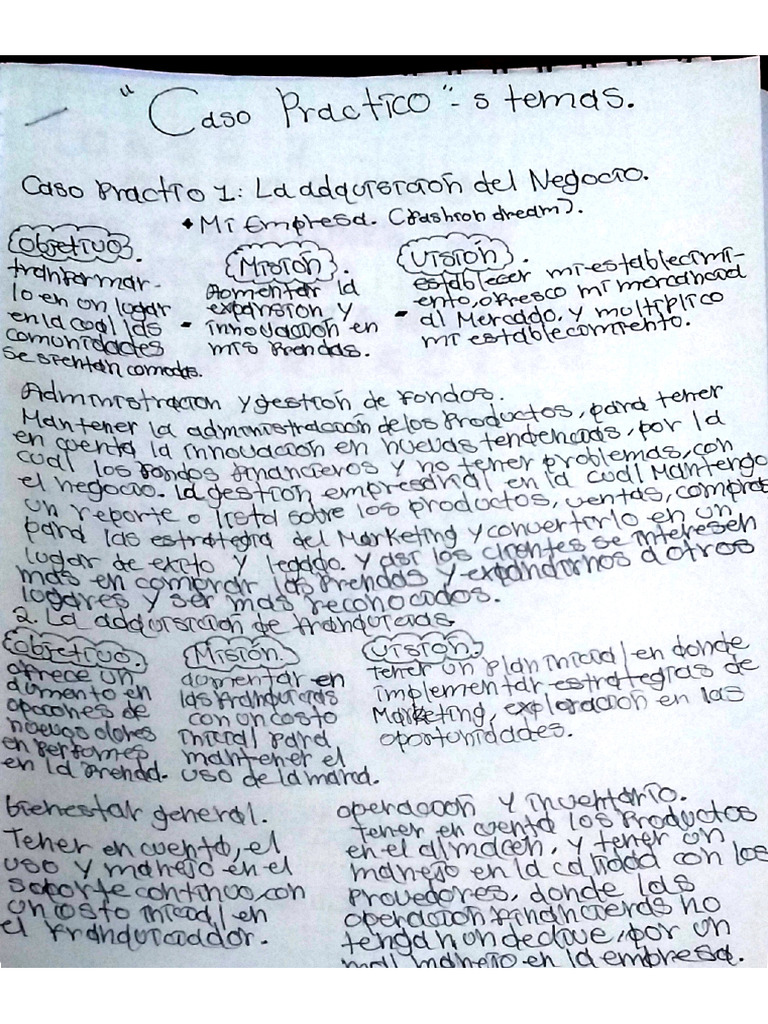 "Caso Practico" - 5 temas.
Caso Practio 1: La adquisicion del Negocio.
• Mi Empresa. (fashion dream).
Objetivo.
tranformar-
lo en un lugar
en la cual las
comunidades
se sientan comodas.
Misión.
Aomentar la
expansion y
- innovación en
mis Prendas.
Visión.
establecer mi establecimi-
ento, ofresco mi mercancia
- al Mercado, y multiplico
mi establecimiento.
Administracion y gestion de fondos.
Mantener la administración de los Productos, para tener
en cuenta la innovación en nuevas tendencias, por la
cual los fondos financieros y no tener problemas, con
el negocio. la gestion empresarial en la cual Mantengo
un reporte o lista sobre los productos, ventas, compras
para las estrategia del Marketing y convertirlo en un
lugar de exito y legado. y así los clientes se interesen
mas en comprar las Prendas y expandirnos a otros
lugares y ser mas reconocidos.
2. La adquisicion de franquicias
Objetivo.
ofrece un
aumento en
opciones de
nuevos olores
en perfomes
en la prenda.
Misión.
aumentar en
las franquicias
con un costo
inicial para
mantener el
uso de la marca.
Visión.
tener un plan inicial en donde
implementar estrategias de
Marketing, exploración en las
oportunidades.
bienestar general.
Tener en cuenta, el
uso y manejo en el
soporte continuo, con
un costo inicial en
el franquiciador.
operación y inventario.
tener en cuenta los Productos
en el almacen, y tener un
manejo en la calidad con los
Provedores, donde las
operacion financieras no
tengan un declive, por un
mal manejo en la empresa.